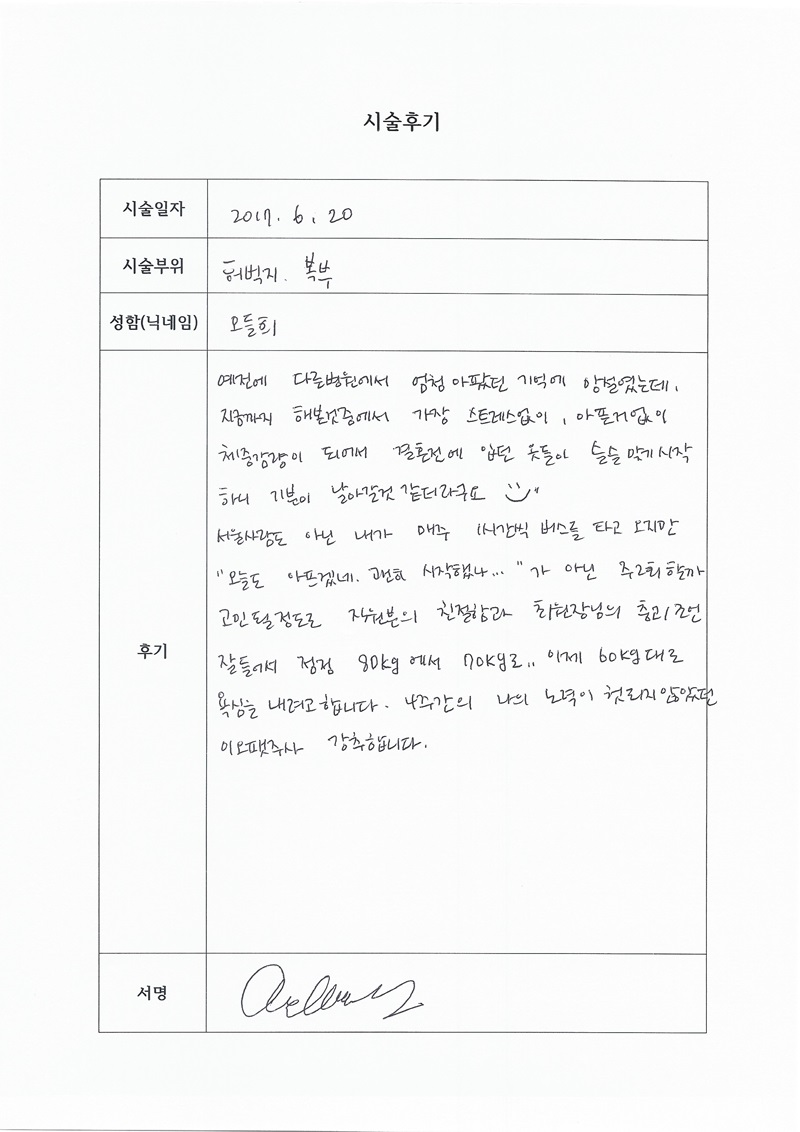 시술후기
시술일자 2017. 6. 20
시술부위 허벅지. 복부
성함(닉네임) 오들희
후기
예전에 다른병원에서 엄청 아팠던 기억에 망설였는데,
지금까지 해본것중에서 가장 스트레스없이, 아플거없이
체중감량이 되어서 결혼전에 입던 옷들이 슬슬 맞기시작
하니 기분이 날아갈것 같더라구요
서울사람도 아닌 내가 매주 1시간씩 버스를 타고 오지만
"오늘도 아프겠네. 괜히 시작했나..." 가 아닌 주2회할까
고민될정도로 직원분의 친절함과 최원장님의 충고/조언
잘들어서 정정 80kg에서 70kg로.. 이제 60kg대로
욕심을 내려고합니다. 4주간의 나의 노력이 헛되지않았던
이오팻주사 강추합니다.
서명